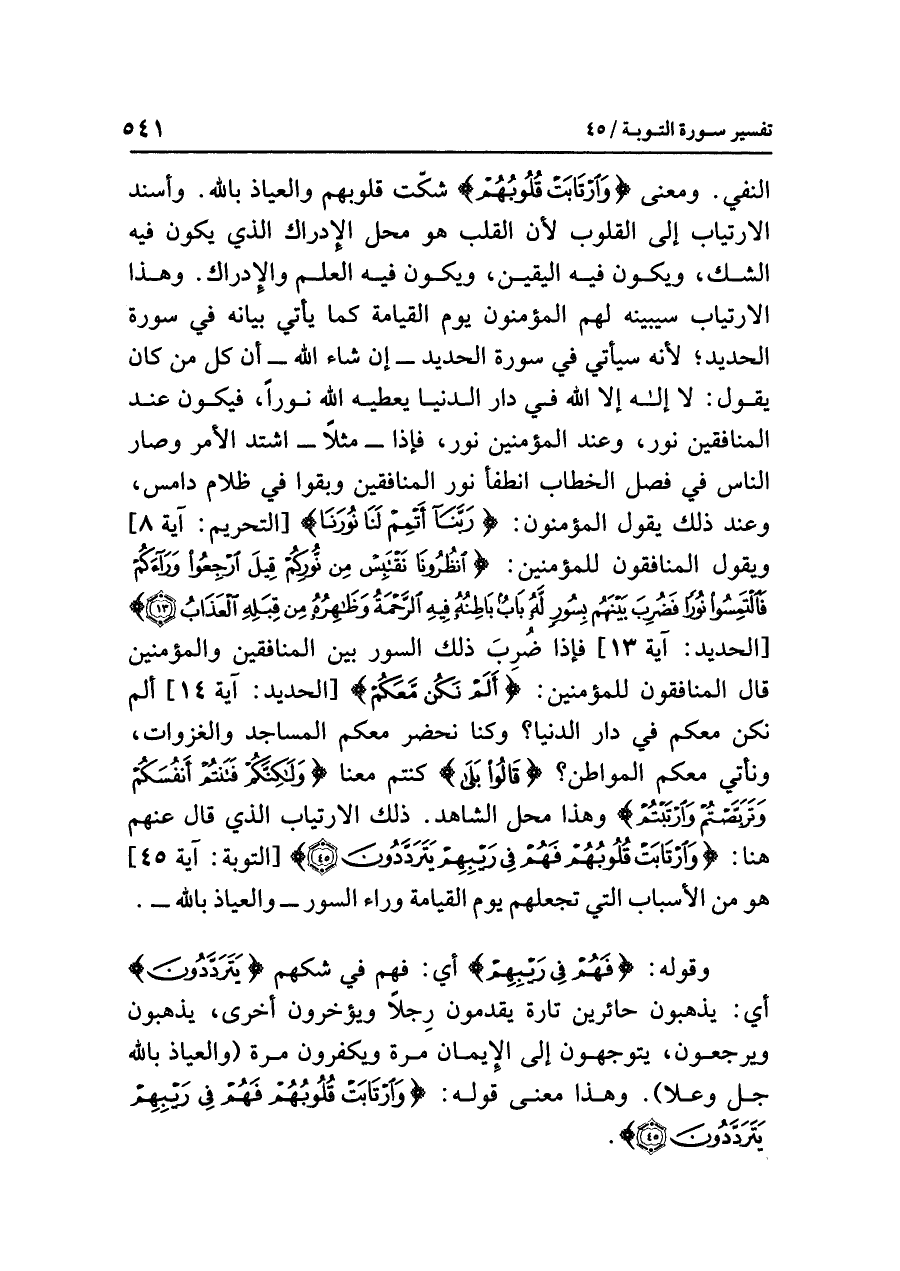 تفسير سورة التوبة / ٤٥ ٥٤١
النفي. ومعنى ﴿وَٱرْتَابَتْ قُلُوبُهُمْ﴾ شكّت قلوبهم والعياذ بالله. وأسند
الارتياب إلى القلوب لأن القلب هو محل الإدراك الذي يكون فيه
الشك، ويكون فيه اليقين، ويكون فيه العلم والإدراك. وهذا
الارتياب سيبينه لهم المؤمنون يوم القيامة كما يأتي بيانه في سورة
الحديد؛ لأنه سيأتي في سورة الحديد ــ إن شاء الله ــ أن كل من كان
يقول: لا إلٰه إلا الله في دار الدنيا يعطيه الله نوراً، فيكون عند
المنافقين نور، وعند المؤمنين نور، فإذا ــ مثلاً ــ اشتد الأمر وصار
الناس في فصل الخطاب انطفأ نور المنافقين وبقوا في ظلام دامس،
وعند ذلك يقول المؤمنون: ﴿رَبَّنَآ أَتْمِمْ لَنَا نُورَنَا﴾ [التحريم: آية ٨]
ويقول المنافقون للمؤمنين: ﴿ٱنظُرُونَا نَقْتَبِسْ مِن نُّورِكُمْ قِيلَ ٱرْجِعُوا۟ وَرَآءَكُمْ
فَٱلْتَمِسُوا۟ نُورًا فَضُرِبَ بَيْنَهُم بِسُورٍ لَّهُۥ بَابٌۢ بَاطِنُهُۥ فِيهِ ٱلرَّحْمَةُ وَظَٰهِرُهُۥ مِن قِبَلِهِ ٱلْعَذَابُ ١٣﴾
[الحديد: آية ١٣] فإذا ضُرِبَ ذلك السور بين المنافقين والمؤمنين
قال المنافقون للمؤمنين: ﴿أَلَمْ نَكُن مَّعَكُمْ﴾ [الحديد: آية ١٤] ألم
نكن معكم في دار الدنيا؟ وكنا نحضر معكم المساجد والغزوات،
ونأتي معكم المواطن؟ ﴿قَالُوا۟ بَلَىٰ﴾ كنتم معنا ﴿وَلَٰكِنَّكُمْ فَتَنتُمْ أَنفُسَكُمْ
وَتَرَبَّصْتُمْ وَٱرْتَبْتُمْ﴾ وهذا محل الشاهد. ذلك الارتياب الذي قال عنهم
هنا: ﴿وَٱرْتَابَتْ قُلُوبُهُمْ فَهُمْ فِى رَيْبِهِمْ يَتَرَدَّدُونَ ٤٥﴾ [التوبة: آية ٤٥]
هو من الأسباب التي تجعلهم يوم القيامة وراء السور ــ والعياذ بالله ــ .
وقوله: ﴿فَهُمْ فِى رَيْبِهِمْ﴾ أي: فهم في شكهم ﴿يَتَرَدَّدُونَ﴾
أي: يذهبون حائرين تارة يقدمون رِجلاً ويؤخرون أخرى، يذهبون
ويرجعون، يتوجهون إلى الإيمان مرة ويكفرون مرة (والعياذ بالله
جل وعلا). وهذا معنى قوله: ﴿وَٱرْتَابَتْ قُلُوبُهُمْ فَهُمْ فِى رَيْبِهِمْ
يَتَرَدَّدُونَ ٤٥﴾.